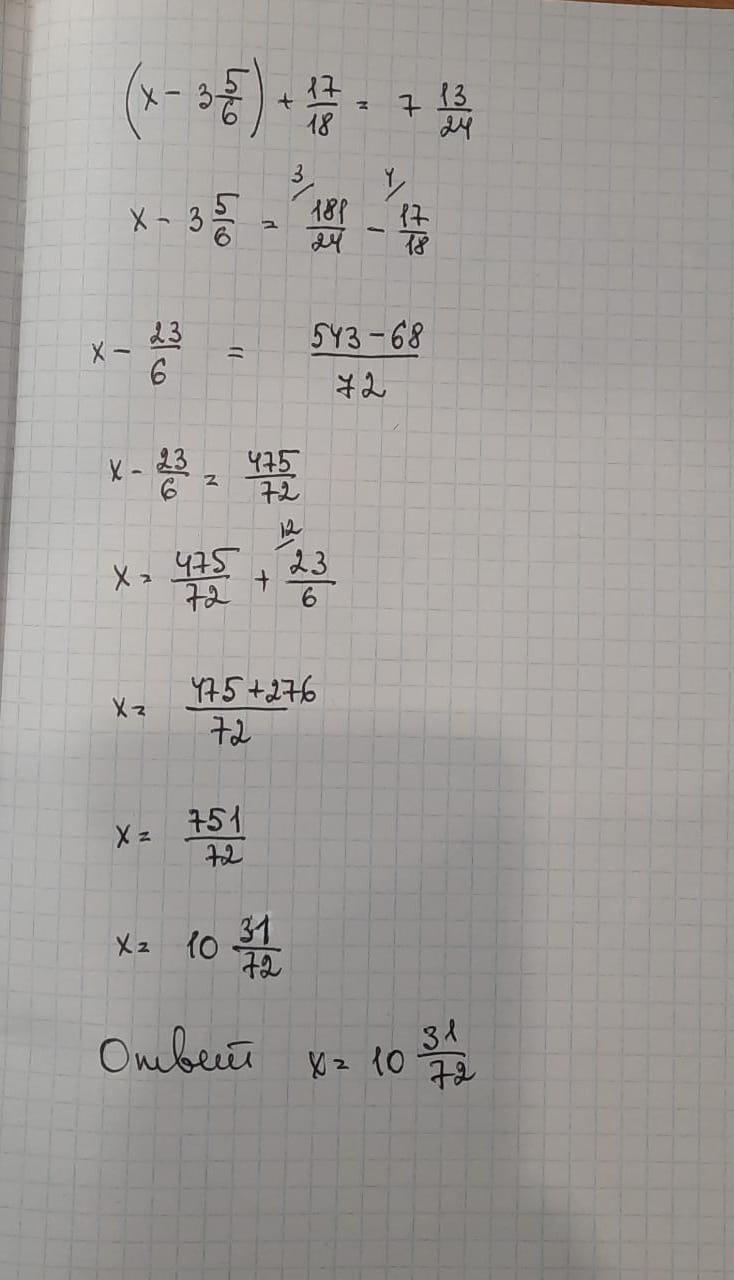 (x - 3 5/6) + 17/18 = 7 13/24
x - 3 5/6 = 3/ 181/24 - 4/ 17/18
x - 23/6 = (543 - 68)/72
x - 23/6 = 475/72
x = 475/72 + 12/ 23/6
x = (475 + 276)/72
x = 751/72
x = 10 31/72
Ответ x = 10 31/72